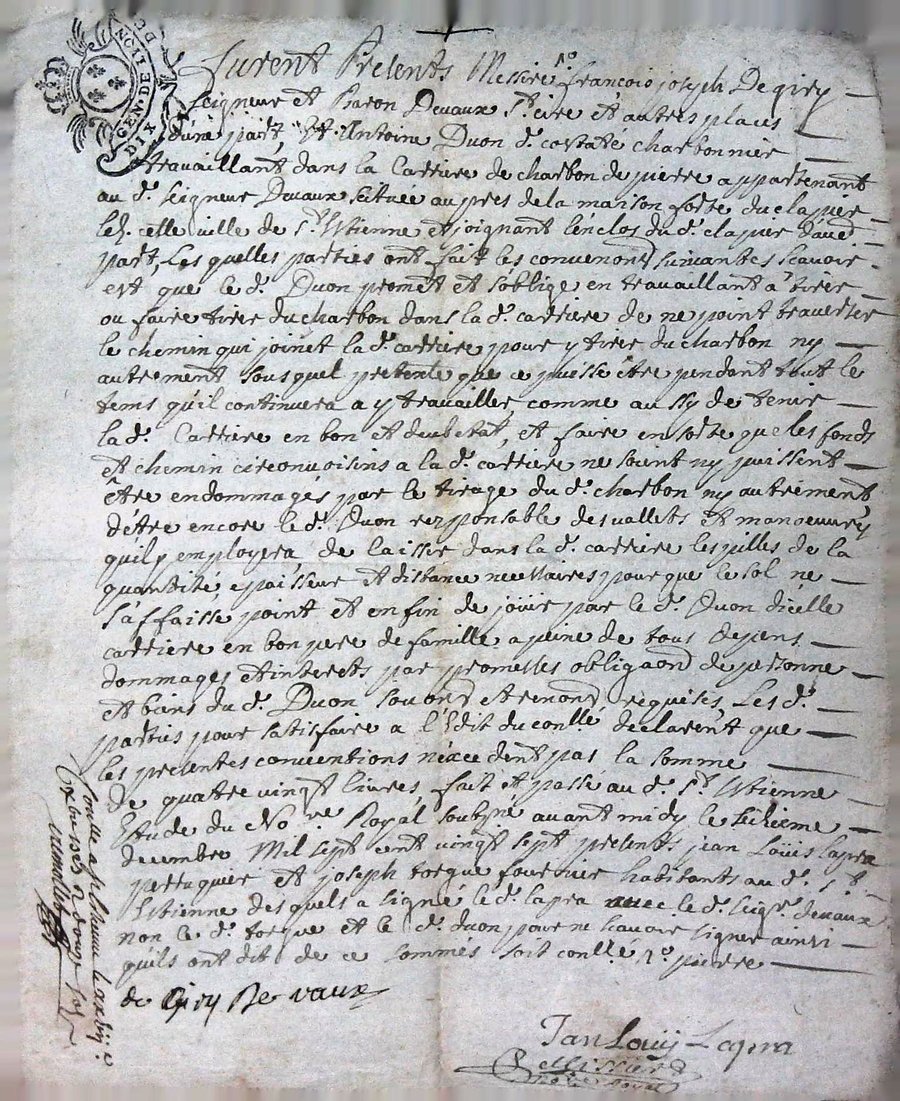 GEN. DE LION
DIX
furent Presents Messire françois joseph De giry
seigneur et Baron Devaux St. cire et autres places
d'une part, Et Antoine Duon d. costate charbonnier
travaillant dans la Carriere de charbon de pierre appartenant
au d. seigneur Devaux scituée au pres de la maison forte du clapier
lez celle ville de St. Estienne et joignant l'enclos du d. clapier d'aue
part, Les quelles parties ont fait les convenons suivantes scavoir
est que le d. Duon promet et s'oblige en travaillant a tirer
ou faire tirer du charbon dans la d. carriere de ne point traverser
le chemin qui joinct la d. carriere pour y tirer du charbon ny
autrement sous quel pretexte que ce puisse être pendant tout le
tems qu'il continuera a y travailler, comme aussy de tenir
la d. Carriere en bon et deub etat, et faire en sorte que les fonds
et chemin circonvoisins a la d. carriere ne soient ny puissent
être endommagés par le tirage du d. charbon ny autrement
d'être encore le d. Duon responsable des vallets et manoeuvres
quil y employera de laisser dans la d. carriere les pilles de la
quantité, epaisseur et distance necessaires pour que le sol ne
s'affaisse point et en fin de joüir par le d. Duon d'icelle
carriere en bon pere de famille a peine de tous depens
dommages et interets par promesses obligaond de personne
et biens du d. Duon soub et renond requises, Les d.
parties pour satisfaire a l'Edit du conlle declarent que
les presentes conventions n'excedent pas la somme
De quatre vingt livres, fait et passé au d. St. Estienne
Etude du No.re Royal soubsne avant midy le seizieme
decembre Mil sept cent vingt sept presents jean Loüis Lapra
perruquier et joseph torgue fournier habitants au d. St.
Estienne desquels a signé le d. lapra avec le d. seigr. devaux
non le d. torgue et le d. duon pour ne scavoir signer ainsi
quils ont dit de ce sommés soit conlle. 
de Giry De vaux
Jan Louis Lapra
Pellissier
Nore Royal